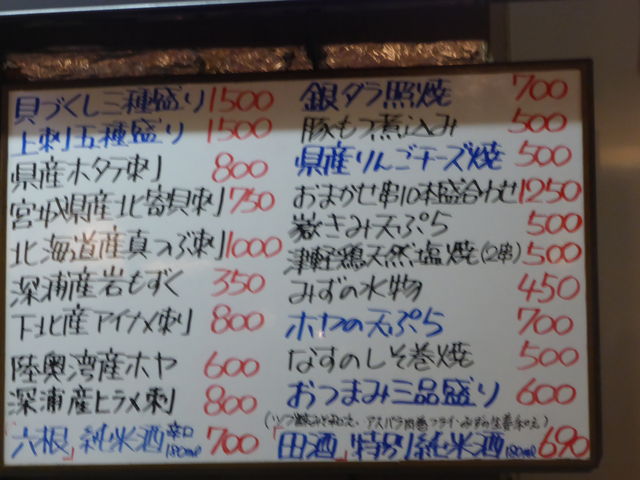 貝づくし三種盛り 1500
上刺五種盛り 1500
県産ホタテ刺 800
宮城県産北寄貝刺 750
北海道産真つぶ刺 1000
深浦産岩もずく 350
下北産アイナメ刺 800
陸奥湾産ホヤ 600
深浦産ヒラメ刺 800
六根 純米酒 辛口 180ml 700
銀ダラ照焼 700
豚もつ煮込み 500
県産りんごチーズ焼 500
おまかせ串10本盛合わせ 1250
嶽きみ天ぷら 500
津軽鶏天然塩焼(2串) 500
みずの水物 450
ホヤの天ぷら 700
なすのしそ巻焼 500
おつまみ三品盛り 600
アスパラ肉巻フライ・みずの生姜和え)
「田酒」特別純米酒 180ml 690